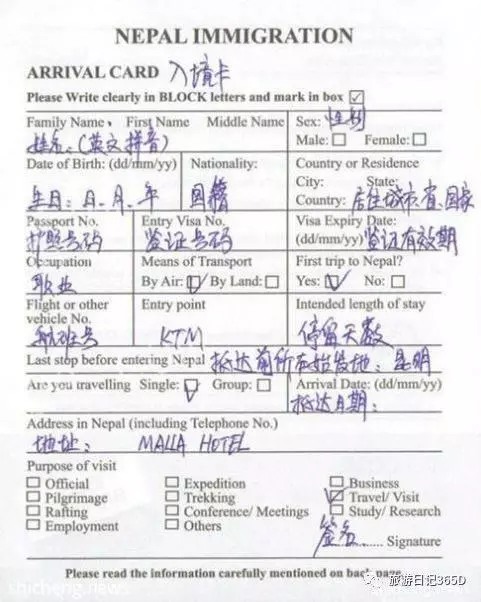 NEPAL IMMIGRATION
ARRIVAL CARD 入境卡
Please Write clearly in BLOCK letters and mark in box ☑
Family Name, First Name Middle Name
姓名:(英文拼音)
Sex: 性别
Male: ☐ Female: ☐
Date of Birth: (dd/mm/yy)
生日:日.月.年
Nationality:
国籍
Country or Residence
City: State:
Country: 居住城市.省.国家
Passport No.
护照号码
Entry Visa No.
签证号码
Visa Expiry Date:
(dd/mm/yy) 签证有效期
Occupation
职业
Means of Transport
By Air: ☑ By Land: ☐
First trip to Nepal?
Yes: ☑ No: ☐
Flight or other
vehicle No.
航班号
Entry point
KTM
Intended length of stay
停留天数
Last stop before entering Nepal 抵达前所在始发地:昆明
Are you travelling Single: ☑ Group: ☐
Arrival Date: (dd/mm/yy)
抵达日期:
Address in Nepal (including Telephone No.)
地址: MALLA HOTEL
Purpose of visit
☐ Official ☐ Expedition ☐ Business
☐ Pilgrimage ☐ Trekking ☑ Travel/ Visit
☐ Rafting ☐ Conference/ Meetings ☐ Study/ Research
☐ Employment ☐ Others
签名...... Signature
Please read the information carefully mentioned on back page.
shicheng.new
旅游日记365D